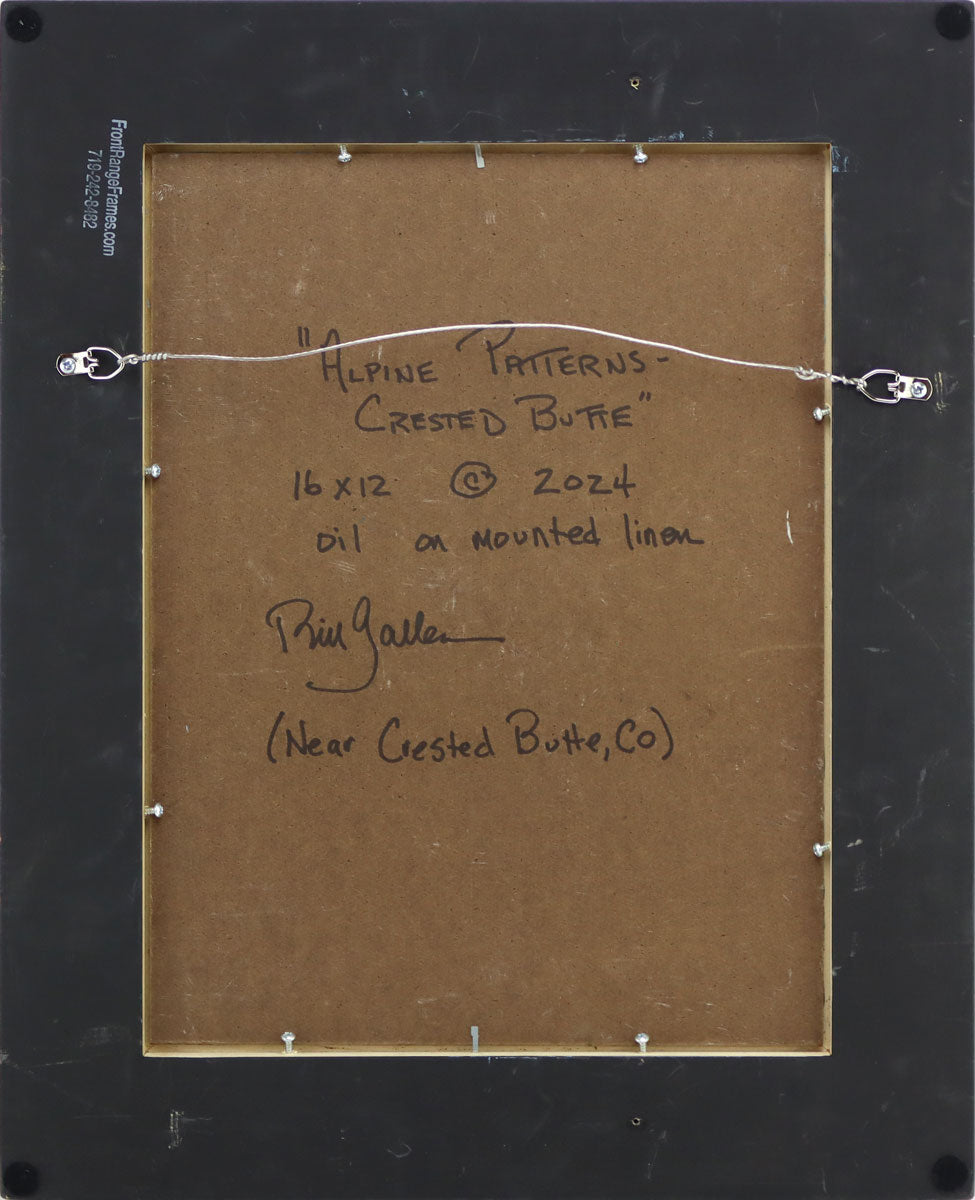 FrontRangeFrames.com
719-242-8482
"ALPINE PATTERNS-
CRESTED BUTTE"
16 x 12 © 2024
oil on mounted linen
Bill Gallen
(Near Crested Butte, CO)